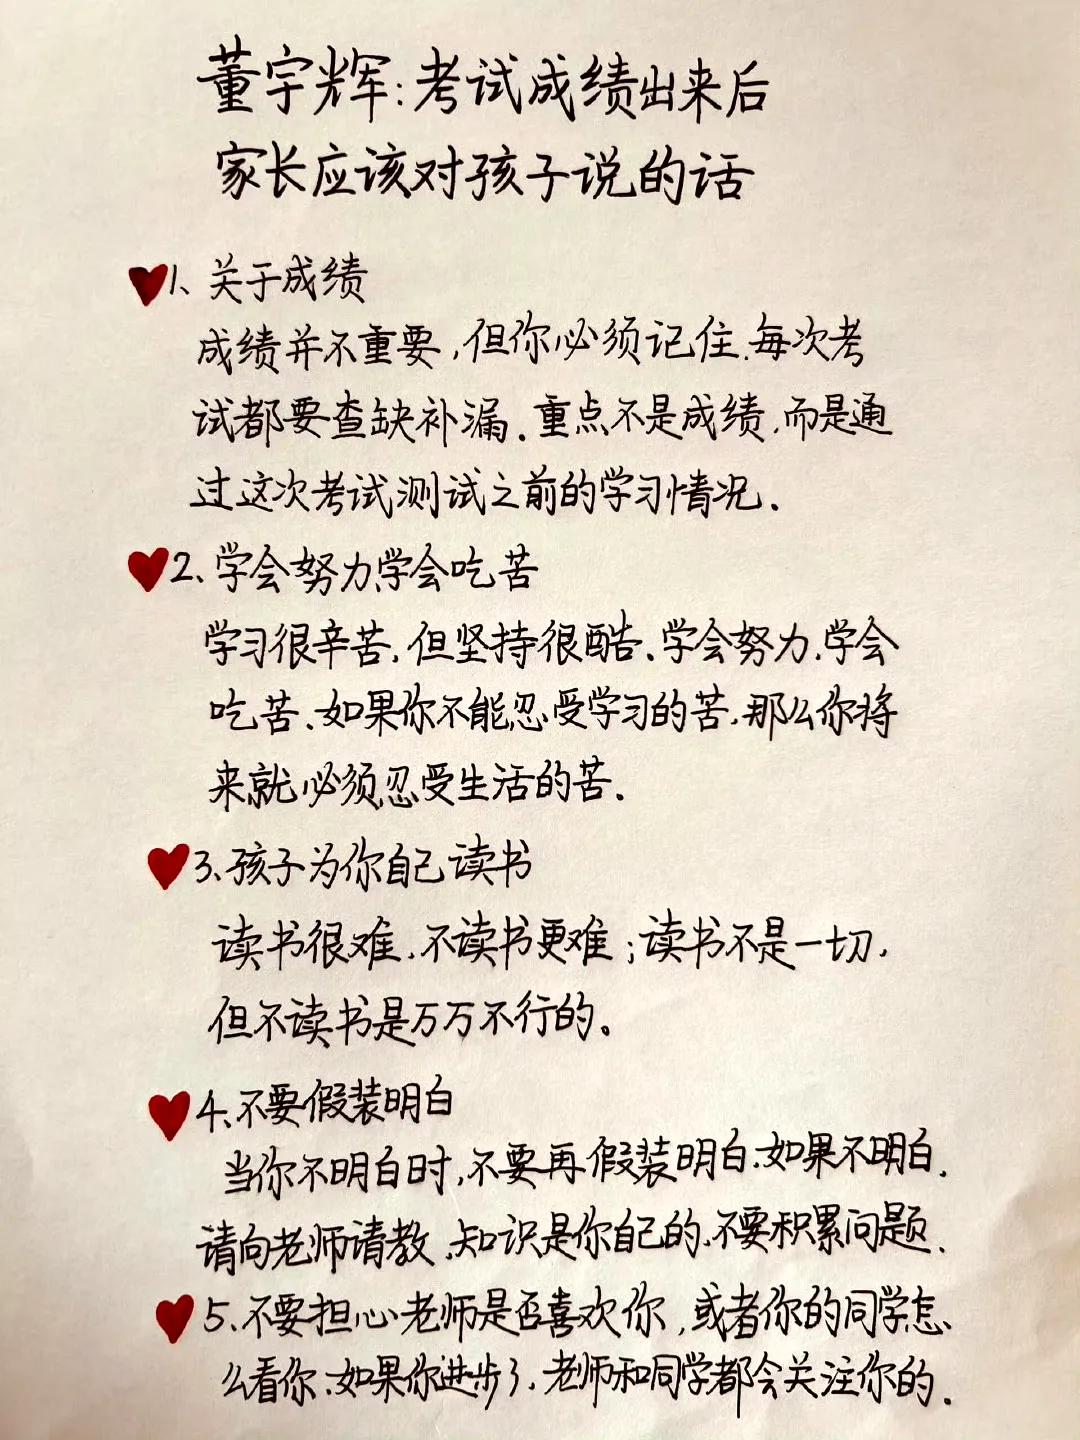 董宇辉:考试成绩出来后
家长应该对孩子说的话
1、关于成绩
成绩并不重要,但你必须记住.每次考
试都要查缺补漏.重点不是成绩,而是通
过这次考试测试之前的学习情况.
2、学会努力,学会吃苦
学习很辛苦,但坚持很酷、学会努力,学会
吃苦、如果你不能忍受学习的苦,那么你将
来就必须忍受生活的苦.
3、孩子为你自己读书
读书很难,不读书更难;读书不是一切,
但不读书是万万不行的。
4、不要假装明白
当你不明白时,不要再假装明白.如果不明白.
请向老师请教、知识是你自己的、不要积累问题.
5、不要担心老师是否喜欢你,或者你的同学怎
么看你、如果你进步了、老师和同学都会关注你的.